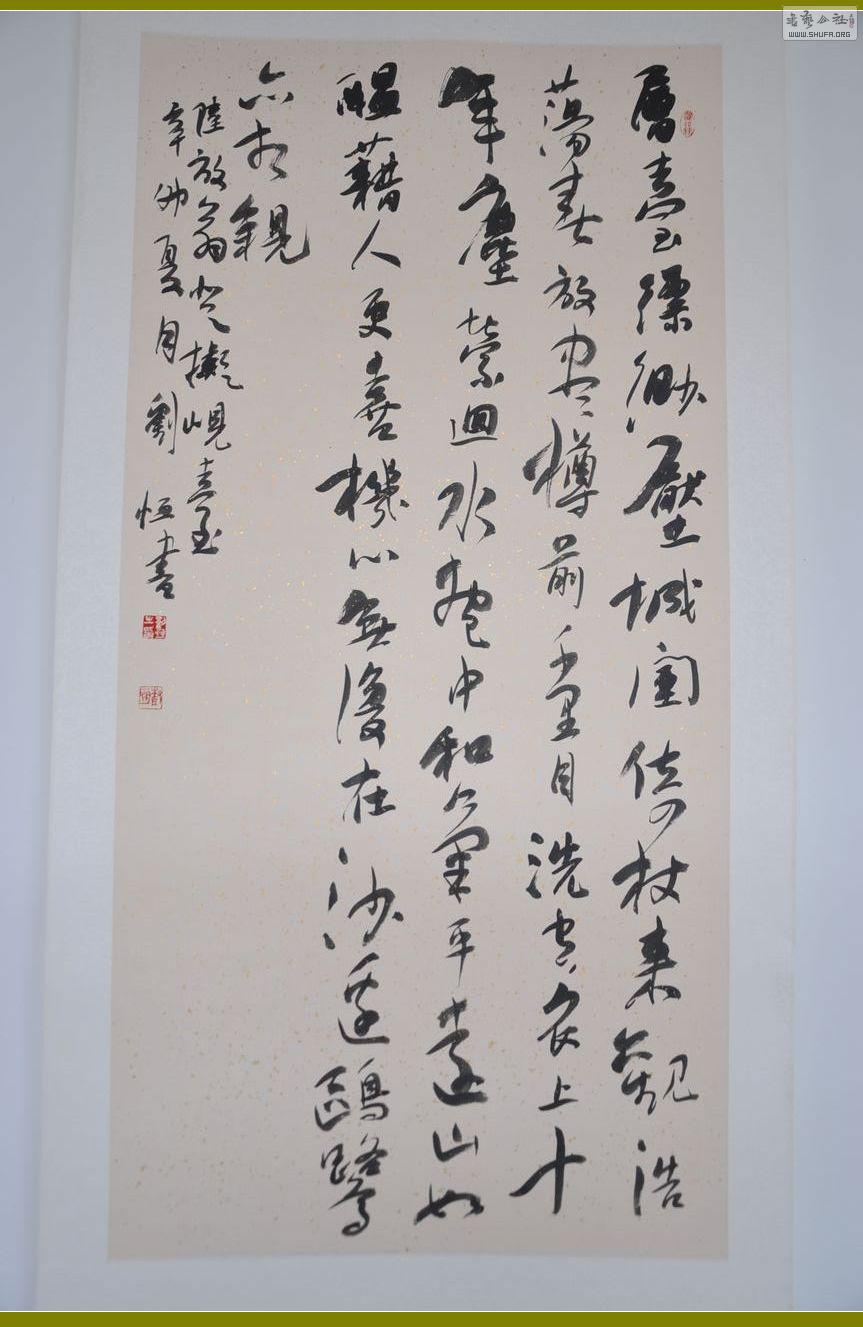 層臺縹緲壓城闉倚杖來觀浩
蕩春放盡樽前千里目洗空衣上十
年塵縈迴水抱中和氣平遠山如
醞藉人更喜機心無復在沙邊鷗鷺
亦相親
陸放翁登擬峴臺
辛卯夏月劉恒書
書藝公社
WWW.SHUFA.ORG